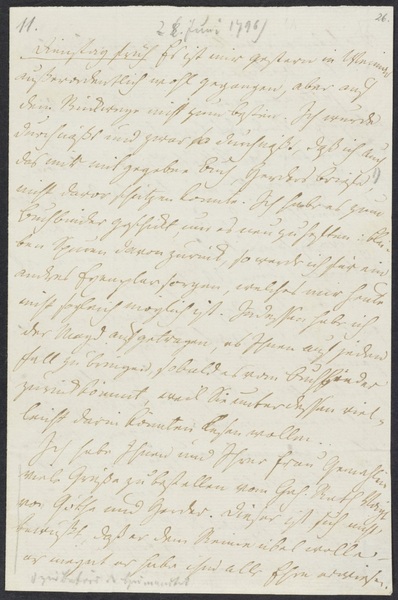 11. 28. Juni 1796) 26.
Dienstag früh Es ist mir gestern in Weimar
außerordentlich wohl gegangen, aber auch
dem Rückwege nicht zum besten. Ich wurde
durchnäßt und zwar so durchnäßt, daß ich auch
das mit mitgegebne Buch, Herders Briefe,
nicht davor schützen konnte. Ich habe es zum
Buchbinder geschickt, um es neu zu heften: blei-
ben Spuren davon zurück, so werde ich für ein
andres Exemplar sorgen, welches mir heute
nicht sogleich möglich ist. Indessen habe ich
der Magd aufgetragen, es Ihnen auf jeden
Fall zu bringen, sobald es vom Buchbinder
zurück kömmt, weil Sie unterdessen viel-
leicht darin könnten lesen wollen.
Ich habe Ihnen und Ihrer Frau Gemahlin
viele Grüße zu bestellen vom Geh. Rath Voigt
von Göthe und Herder. Dieser ist sich nicht
bewußt, daß er dem Reime übel wolle
er meynt er habe ihm alle Ehre erwiesen.